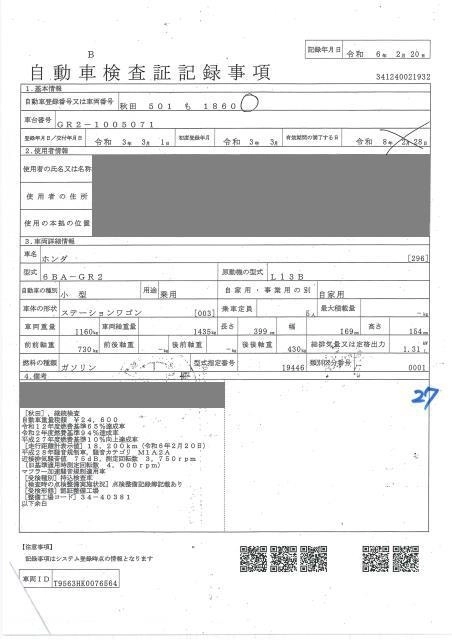 B
記録年月日 令和 6年 2月20日
自動車検査証記録事項
341240021932
1.基本情報
自動車登録番号又は車両番号 秋田 501 も 1860
車台番号 GR2-1005071
登録年月日/交付年月日 令和 3年 3月 1日 初度登録年月 令和 3年 3月 有効期間の満了する日 令和 8年 2月28日
2.使用者情報
使用者の氏名又は名称
使用者の住所
使用の本拠の位置
3.車両詳細情報
車名 ホンダ [296]
型式 6BA-GR2 原動機の型式 L13B
自動車の種別 小型 用途 乗用 自家用・事業用の別 自家用
車体の形状 ステーションワゴン [003] 乗車定員 5人 最大積載量 -kg
車両重量 1160kg 車両総重量 1435kg 長さ 399cm 幅 169cm 高さ 154cm
前前軸重 730kg 前後軸重 -kg 後前軸重 -kg 後後軸重 430kg 総排気量又は定格出力 1.31 kW L
燃料の種類 ガソリン 型式指定番号 19446 類別区分番号 0001
4.備考
27
[秋田],継続検査
自動車重量税額 ¥24,600
令和12年度燃費基準65%達成車
令和2年度燃費基準94%達成車
平成27年度燃費基準10%向上達成車
[走行距離計表示値] 18,200km (令和6年2月20日)
平成28年騒音規制車,騒音カテゴリ M1A2A
近接排気騒音値 75dB,測定回転数 3,750rpm
(旧基準適用時測定回転数 4,000rpm)
マフラー加速騒音規制適用車
[受検種別] 持込検査車
[検査時の点検整備実施状況] 点検整備記録簿記載あり
[受検形態] 認証整備工場
[整備工場コード] 34-40381
以下余白
【注意事項】
記録事項はシステム登録時点の情報となります
車両ID T9563HK0076564